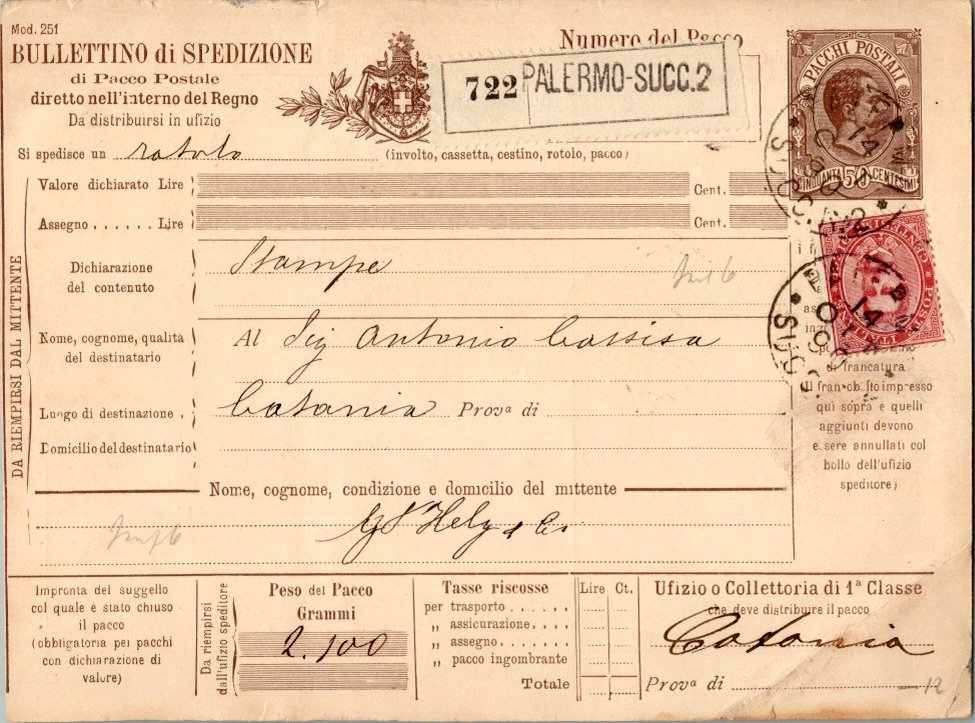 Mod. 251
BULLETTINO di SPEDIZIONE
di Pacco Postale
diretto nell'interno del Regno
Da distribuirsi in ufizio
Numero del Pacco
722 PALERMO-SUCC.2
PACCHI POSTALI
CINQUANTA 50 CENTESIMI
Si spedisce un rotolo (involto, cassetta, cestino, rotolo, pacco)
Valore dichiarato Lire Cent.
Assegno ...... Lire Cent.
Dichiarazione
del contenuto
Stampe
Nome, cognome, qualità
del destinatario
Al Sig Antonio Cassisa
Luogo di destinazione .
Catania Provª di
Domicilio del destinatario
DA RIEMPIRSI DAL MITTENTE
di francatura
Il francobollo impresso
qui sopra e quelli
aggiunti devono
essere annullati col
bollo dell'ufizio
speditore)
Nome, cognome, condizione e domicilio del mittente
Impronta del suggello
col quale è stato chiuso
il pacco
(obbligatoria pei pacchi
con dichiarazione di
valore)
Da riempirsi
dall'ufizio speditore
Peso del Pacco
Grammi
2.100
Tasse riscosse
per trasporto ......
„ assicurazione ....
„ assegno ......
„ pacco ingombrante
Totale
Lire Ct.
Ufizio o Collettoria di 1ª Classe
che deve distribuire il pacco
Catania
Provª di
12